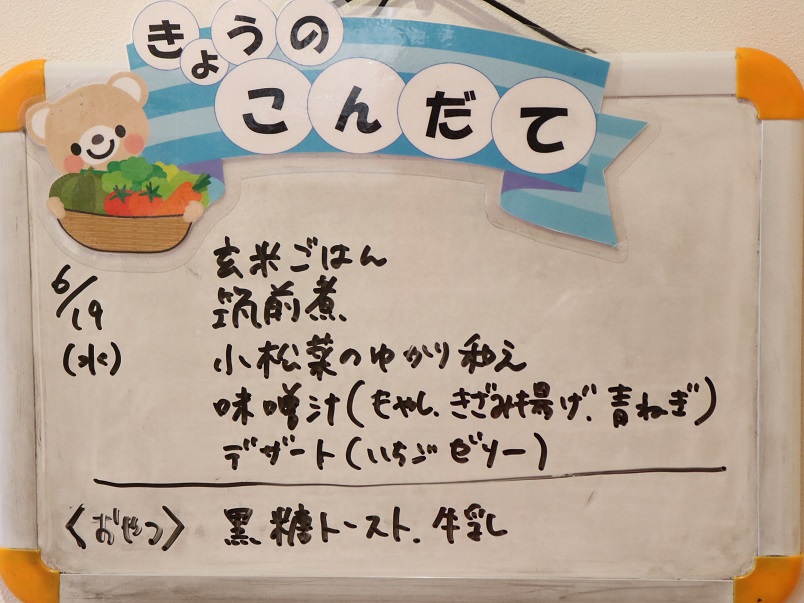 きょうの
こんだて
6/19
(水)
玄米ごはん
筑前煮
小松菜のゆかり和え
味噌汁(もやし、きざみ揚げ、青ねぎ)
デザート(いちごゼリー)
〈おやつ〉 黒糖トースト、牛乳